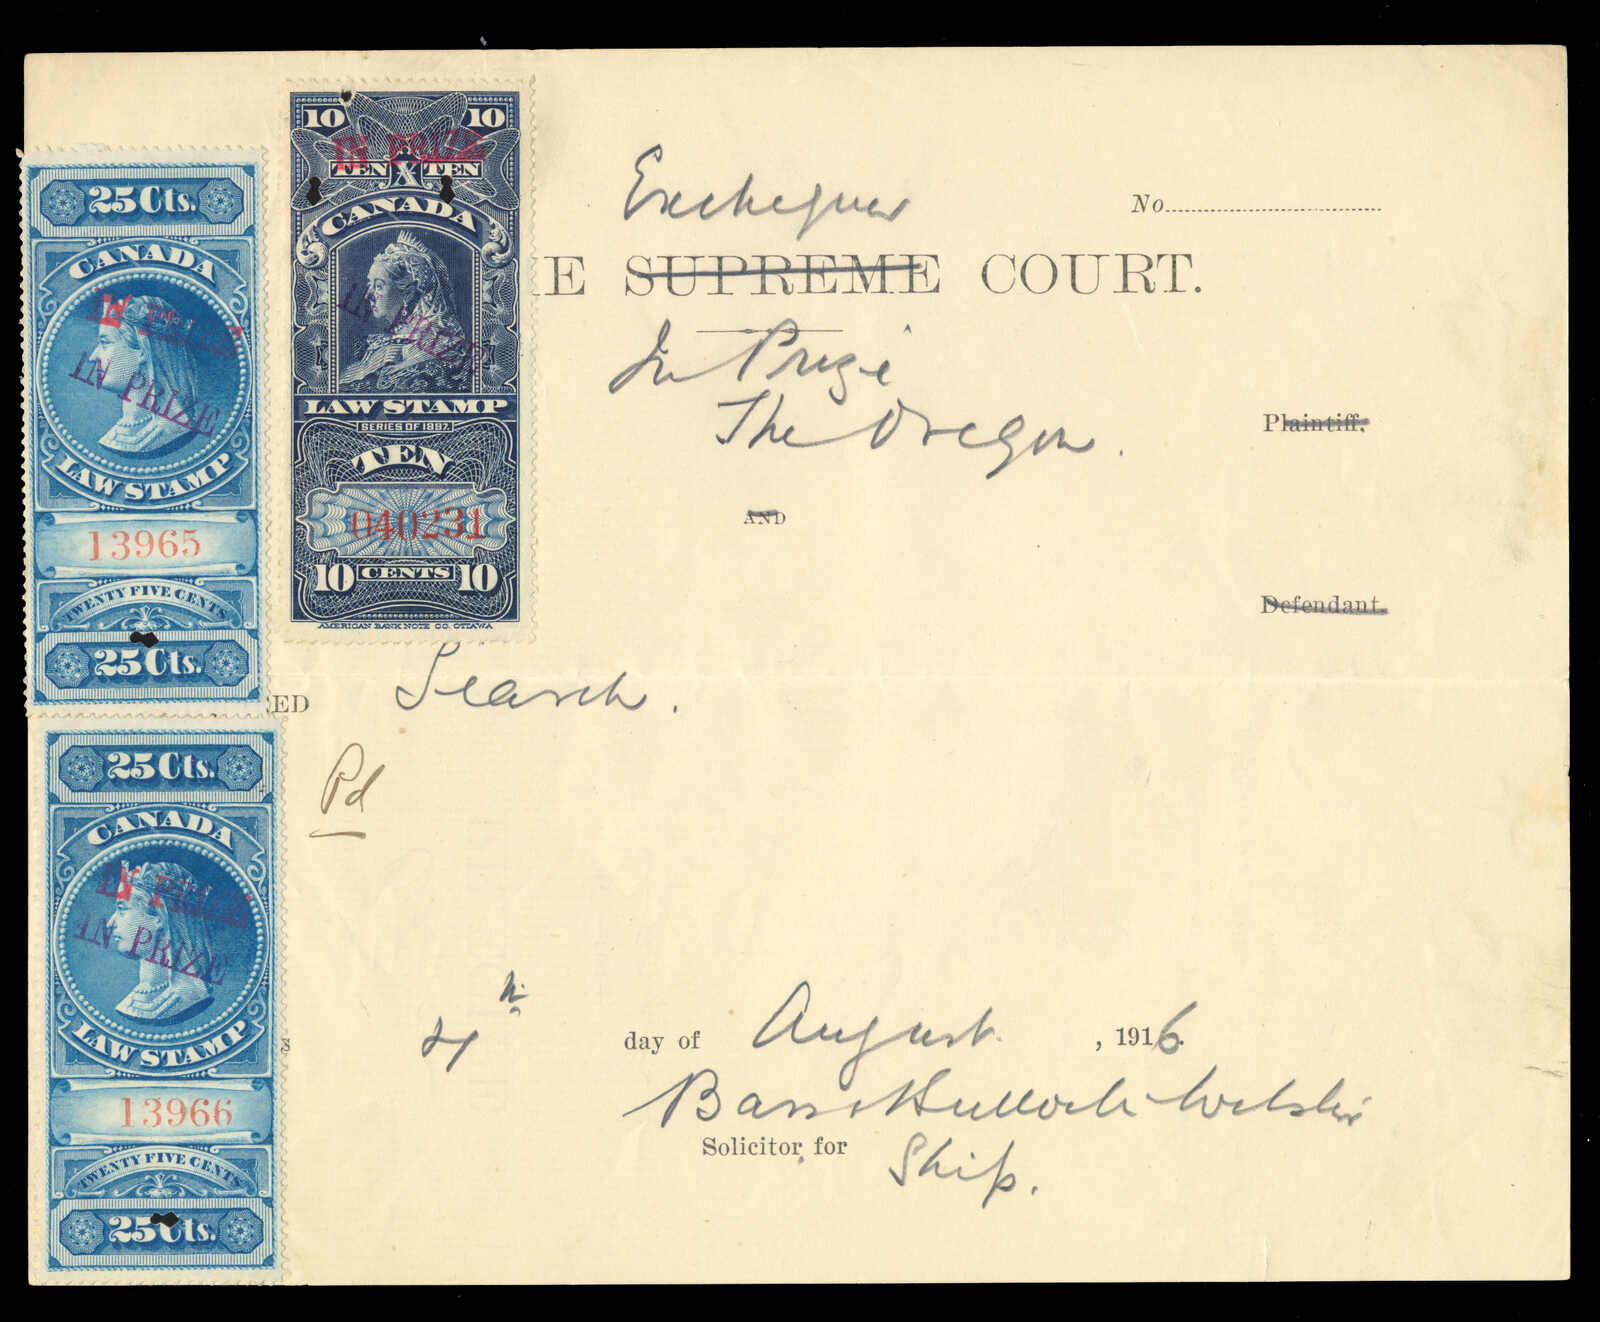 10 10
IN PRIZE
TEN X TEN
CANADA
IN PRIZE
LAW STAMP
SERIES OF 1897.
TEN
040231
10 CENTS 10
AMERICAN BANK NOTE CO. OTTAWA
25 Cts.
CANADA
IN PRIZE
IN PRIZE
LAW STAMP
13965
TWENTY FIVE CENTS
25 Cts.
25 Cts.
CANADA
IN PRIZE
IN PRIZE
LAW STAMP
13966
TWENTY FIVE CENTS
25 Cts.
Exchequer
No.
E SUPREME COURT.
In Prize
The Oregon.
Plaintiff.
AND
Defendant.
ED Search.
Pd
s 4th day of August, 1916.
Solicitor for
Ship.